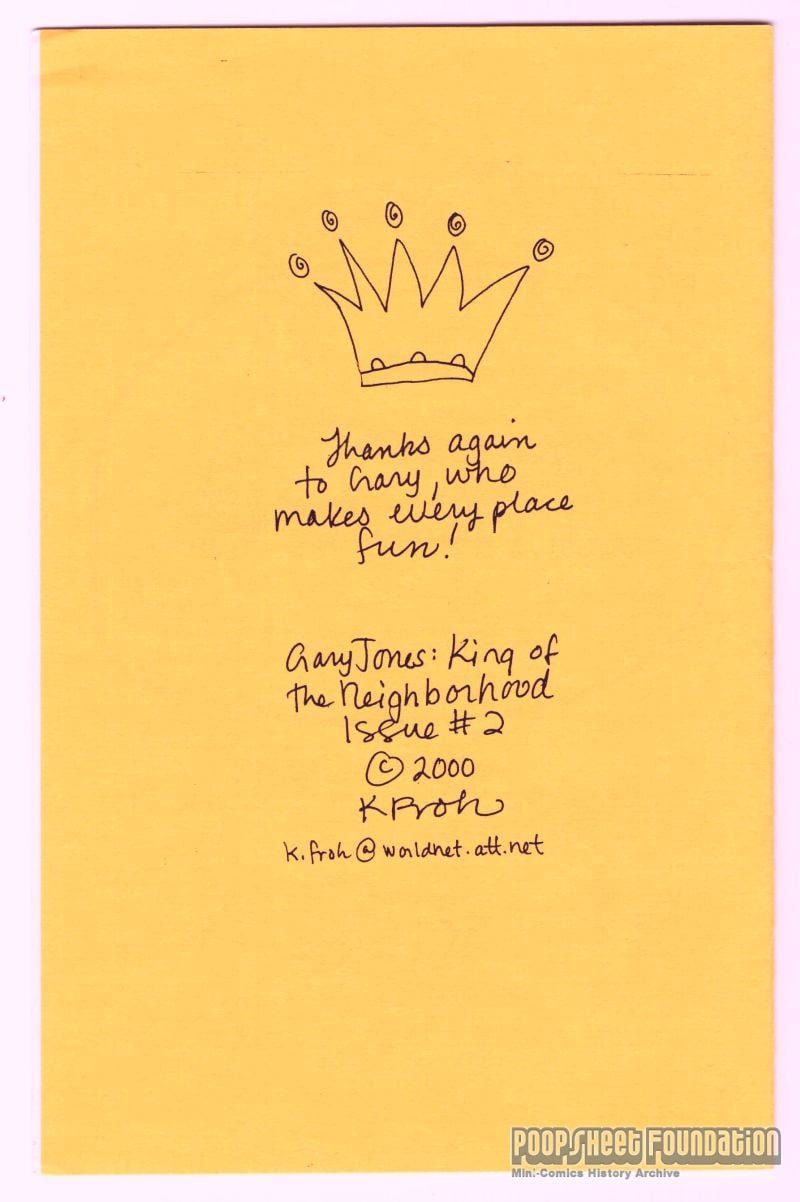 Thanks again
to Gary, who
makes every place
fun!
Gary Jones: King of
the Neighborhood
Issue #2
© 2000
K Froh
k.froh@worldnet.att.net
POOPSHEET FOUNDATION
Mini-Comics History Archive